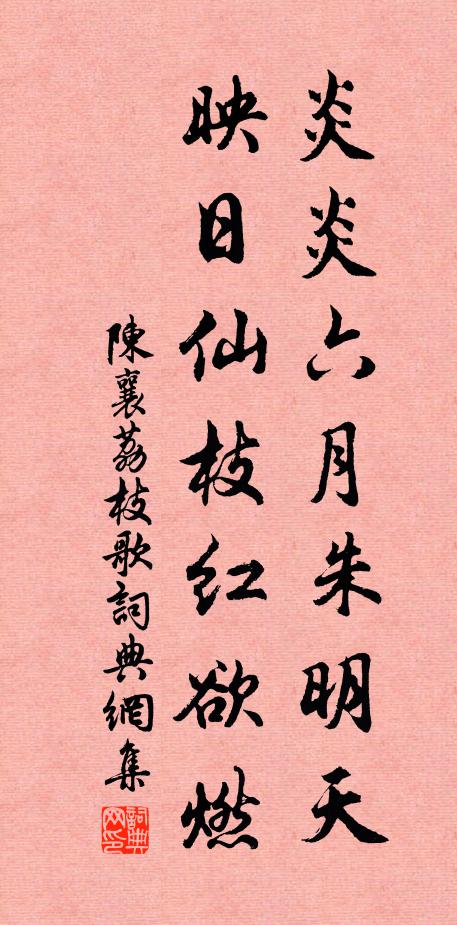 炎炎六月朱明天
映日仙枝红欲燃
陳襄荔枝歌詞典網集
詞典
网印